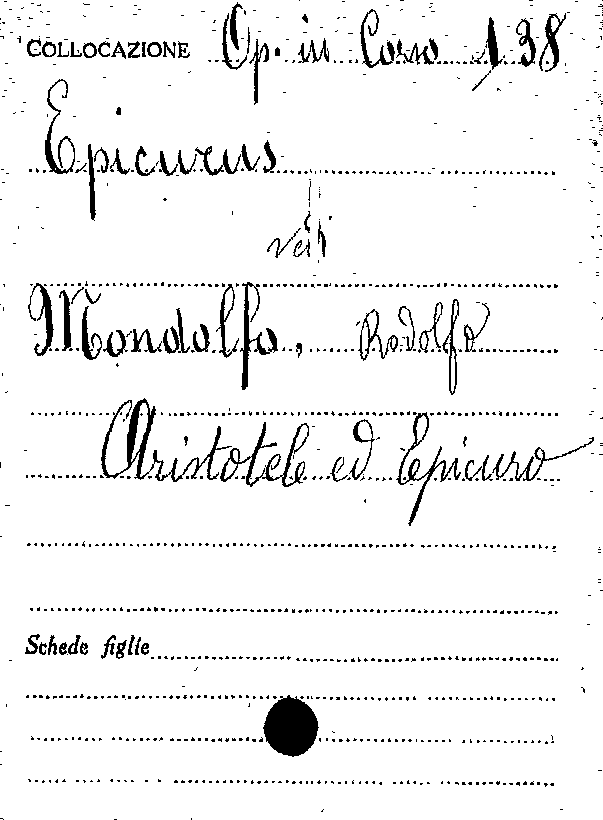 COLLOCAZIONE Op. in Corso 138
Epicureus
vedi
Mondolfo, Rodolfo
Aristotele ed Epicuro
Schede figlie